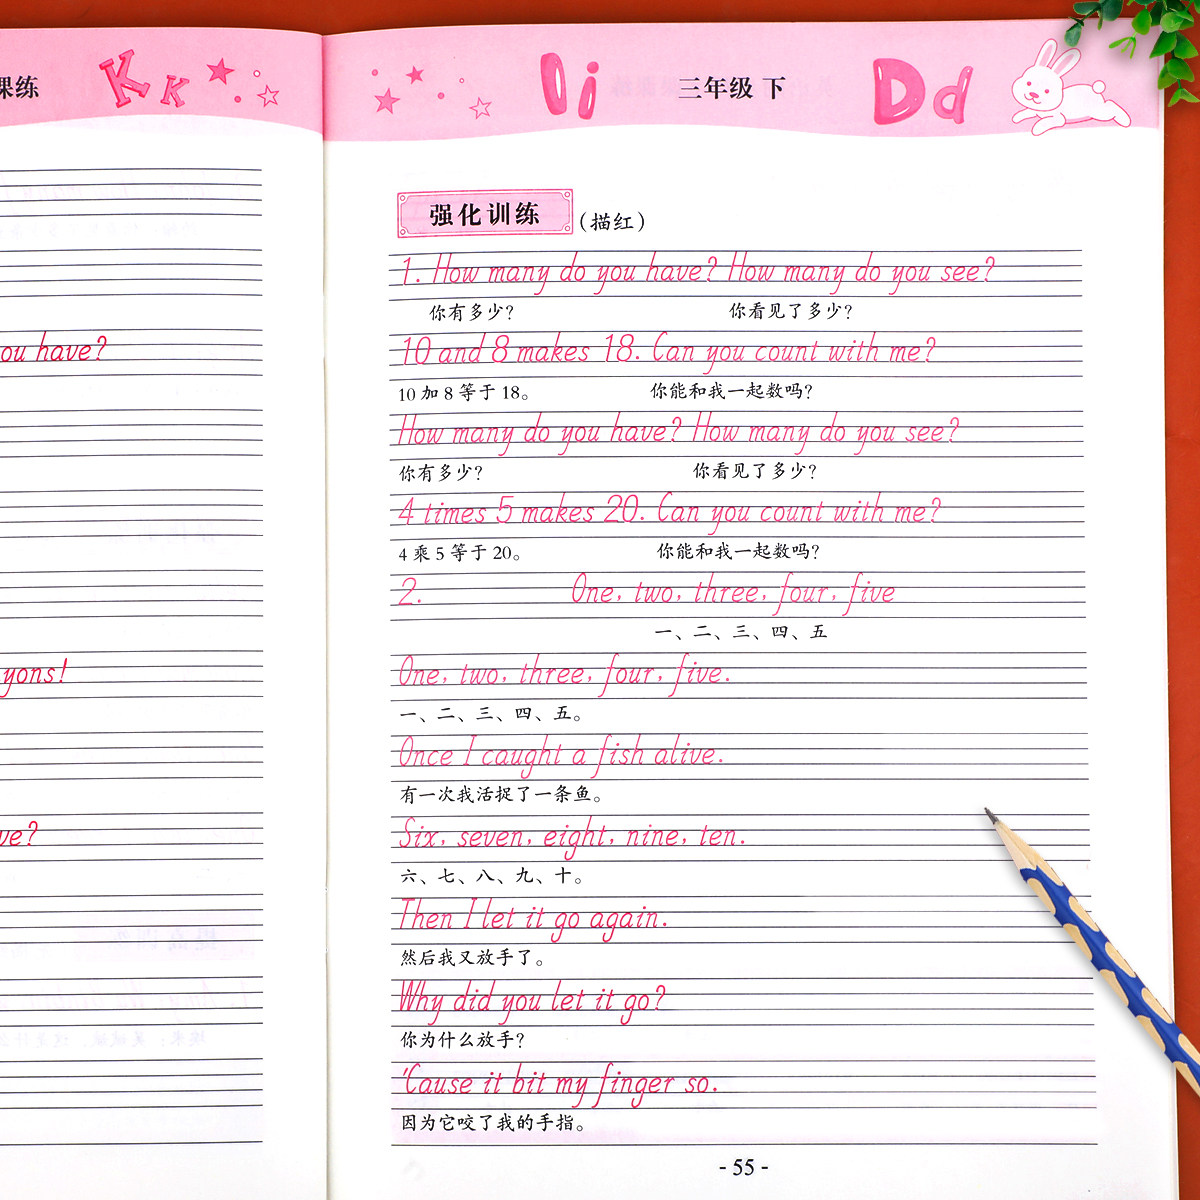 课练
K K
ou have?
yons!
ve?
I i 三年级 下 D d
强化训练 (描红)
1. How many do you have? How many do you see?
你有多少? 你看见了多少?
10 and 8 makes 18. Can you count with me?
10 加 8 等于 18。 你能和我一起数吗?
How many do you have? How many do you see?
你有多少? 你看见了多少?
4 times 5 makes 20. Can you count with me?
4 乘 5 等于 20。 你能和我一起数吗?
2. One, two, three, four, five
一、二、三、四、五
One, two, three, four, five.
一、二、三、四、五。
Once I caught a fish alive.
有一次我活捉了一条鱼。
Six, seven, eight, nine, ten.
六、七、八、九、十。
Then I let it go again.
然后我又放手了。
Why did you let it go?
你为什么放手?
'Cause it bit my finger so.
因为它咬了我的手指。
- 55 -